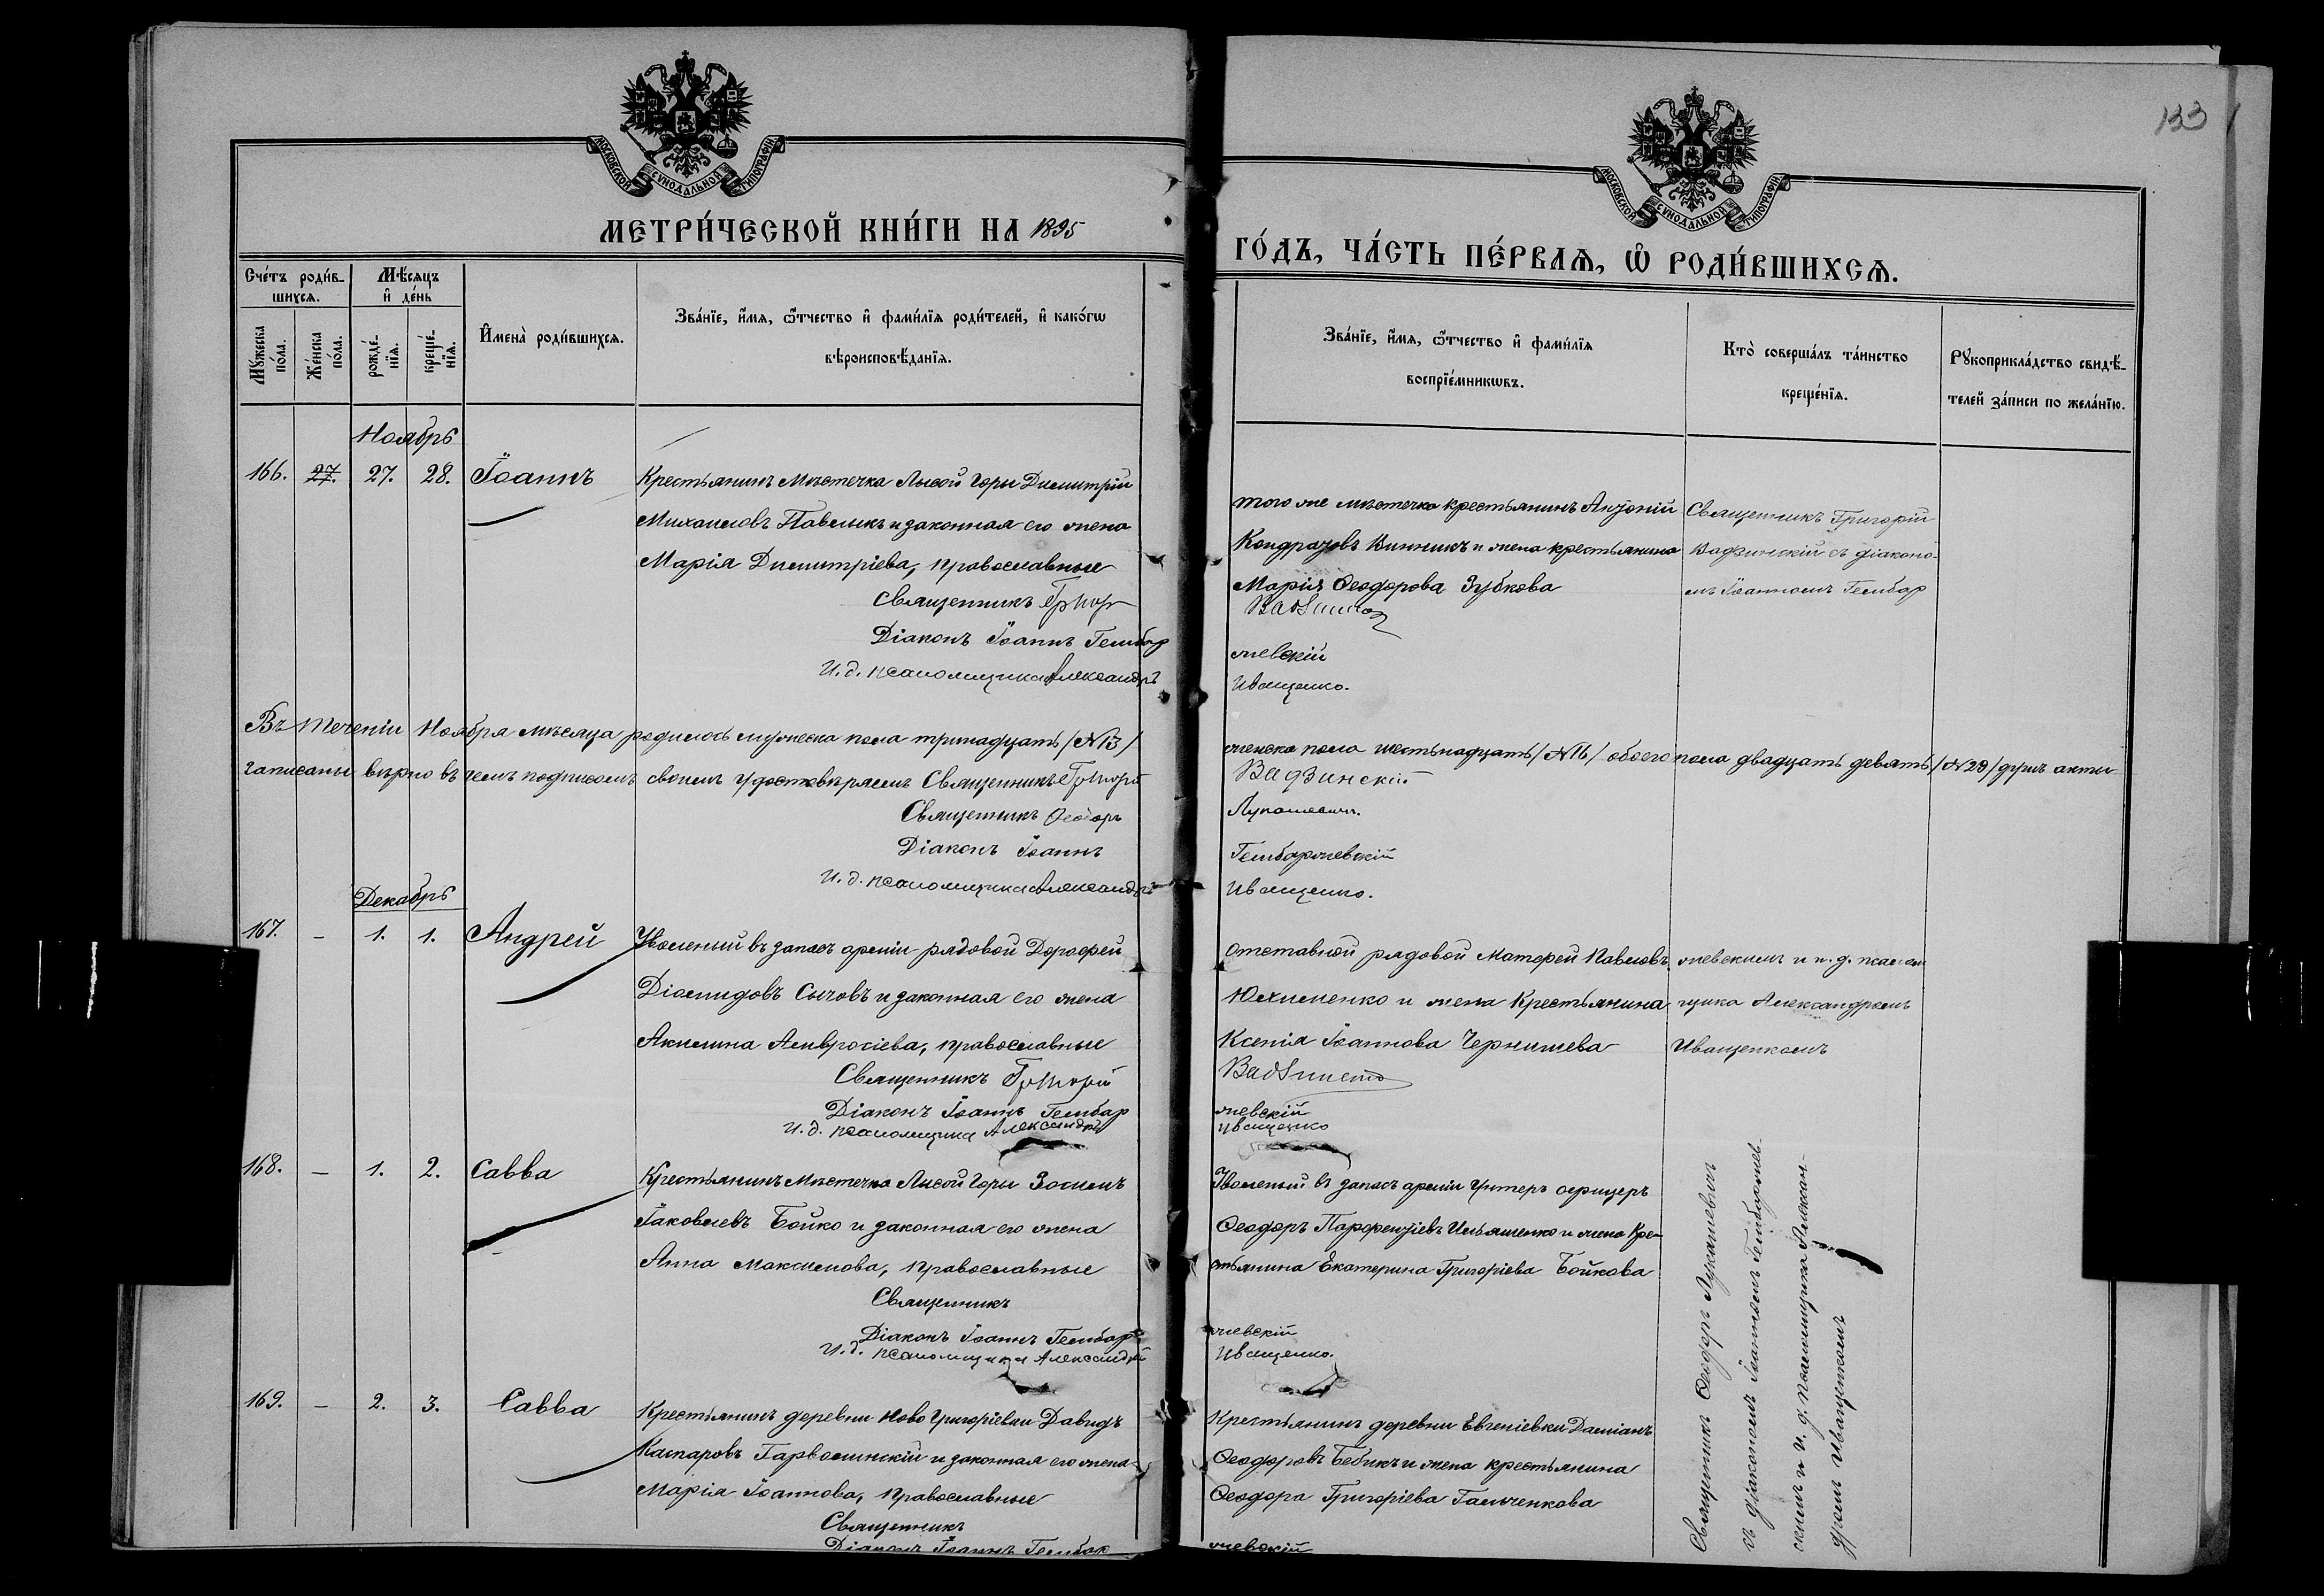 133
МОСКОВСКОЙ СУНОДАЛЬНОЙ ТИПОГРАФІИ
МОСКОВСКОЙ СУНОДАЛЬНОЙ ТИПОГРАФІИ
МЕТРИ́ЧЕСКОЙ КНИ́ГИ НА 1895
ГО́ДЪ, ЧА́СТЬ ПЕ́РВАѦ, Ѡ РОДИ́ВШИХСѦ.
Сче́тъ роди́в-
шихсѧ.
Мѣ́сѧцъ
и де́нь
Мꙋ́жеска
по́ла.
Же́нска
по́ла.
рожде́-
нїѧ.
креще́-
нїѧ.
Имена̀ роди́вшихсѧ.
Зва́нїе, и́мѧ, ѻ҆́тчество и фами́лїѧ роди́телей, и како́гѡ
вѣроисповѣ́данїѧ.
Зва́нїе, и́мѧ, ѻ҆́тчество и фами́лїѧ
воспрїе́мникѡвъ.
Кто̀ соверша́лъ та́инство
креще́нїѧ.
Рꙋкоприкла́дство свидѣ́-
телей за́писи по жела́нїю.
Ноябрь
166. 27. 27. 28. Іоаннъ
Крестьянинъ Мѣстечка Лысой Горы Димитрій
Михаиловъ Павлыкъ и законная его жена
Марія Димитріева, православные
Священникъ Григор
Діаконъ Іоаннъ Гембар
И. д. псаломщика Александръ
того же мѣстечка крестьянинъ Антоній
Кондратовъ Винникъ и жена крестьянина
Марія Ѳеодорова Зубкова
Вадзинскій
жевскій
Иващенко.
Священникъ Григорій
Вадзинскій съ діаконо-
мъ Іоанномъ Гембар
Въ теченіи Ноября мѣсяца родилось мужеска пола тринадцать /№ 13/ женска пола шестьнадцать /№ 16/ обоего пола двадцать девять /№ 29/ душъ акты
записаны вѣрно въ чемъ подписомъ своимъ удостовѣряемъ Священникъ Григорій Вадзинскій
Священникъ Ѳеодоръ Лукашевичъ.
Діаконъ Іоаннъ Гембаржевскій
И. д. псаломщика Александръ Иващенко.
Декабрь
167. – 1. 1. Андрей
Уволеный въ запасъ арміи рядовой Дорофей
Діомидовъ Сычовъ и законная его жена
Акилина Амвросіева, православные
Священникъ Григорій
Діаконъ Іоаннъ Гембар
И. д. псаломщика Александръ
отставной рядовой Матфей Павловъ
Юхименко и жена Крестьянина
Ксенія Іоаннова Чернишева
Вадзинскій
жевскій
Иващенко
жевскимъ и и. д. псалом
щика Александромъ
Иващенкомъ
168. – 1. 2. Савва
Крестьянинъ Мѣстечка Лысой Горы Зосимъ
Іаковлевъ Бойко и законная его жена
Анна Максимова, православные
Священникъ
Діаконъ Іоаннъ Гембар
И. д. псаломщика Александръ
Уволеный въ запасъ арміи Унтеръ офицеръ
Ѳеодоръ Парфентіевъ Ильяшенко и жена Кре-
стьянина Екатерина Григоріева Бойкова
жевскій
Иващенко.
Священникъ Ѳеодоръ Лукашевичъ
съ діакономъ Іоанномъ Гембаржев-
скимъ и и. д. псаломщика Алексан-
дромъ Иващенкомъ
169. – 2. 3. Савва
Крестьянинъ деревни Ново Григоріевки Давидъ
Каспаровъ Гарволинскій и законная его жена
Марія Іоаннова, православные
Священникъ
Діаконъ Іоаннъ Гембар
Крестьянинъ деревни Евгеніевки Даміанъ
Ѳеодоровъ Бебикъ и жена крестьянина
Ѳеодора Григоріева Гальченкова
жевскій